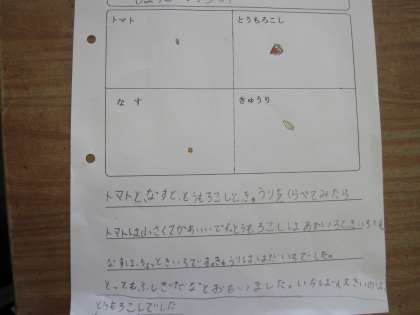 トマト
とうもろこし
なす
きゅうり
トマトと、なすと、とうもろこしと、きゅうりをくらべてみたら
トマトは小さくてかわいいです。とうもろこしはあかいろときいろ
なすは、ちょっときいろです。きゅうりは、はだいろでした。
とってもふしぎだなとおもいました。いちばん大きいのは
とうもろこしでした